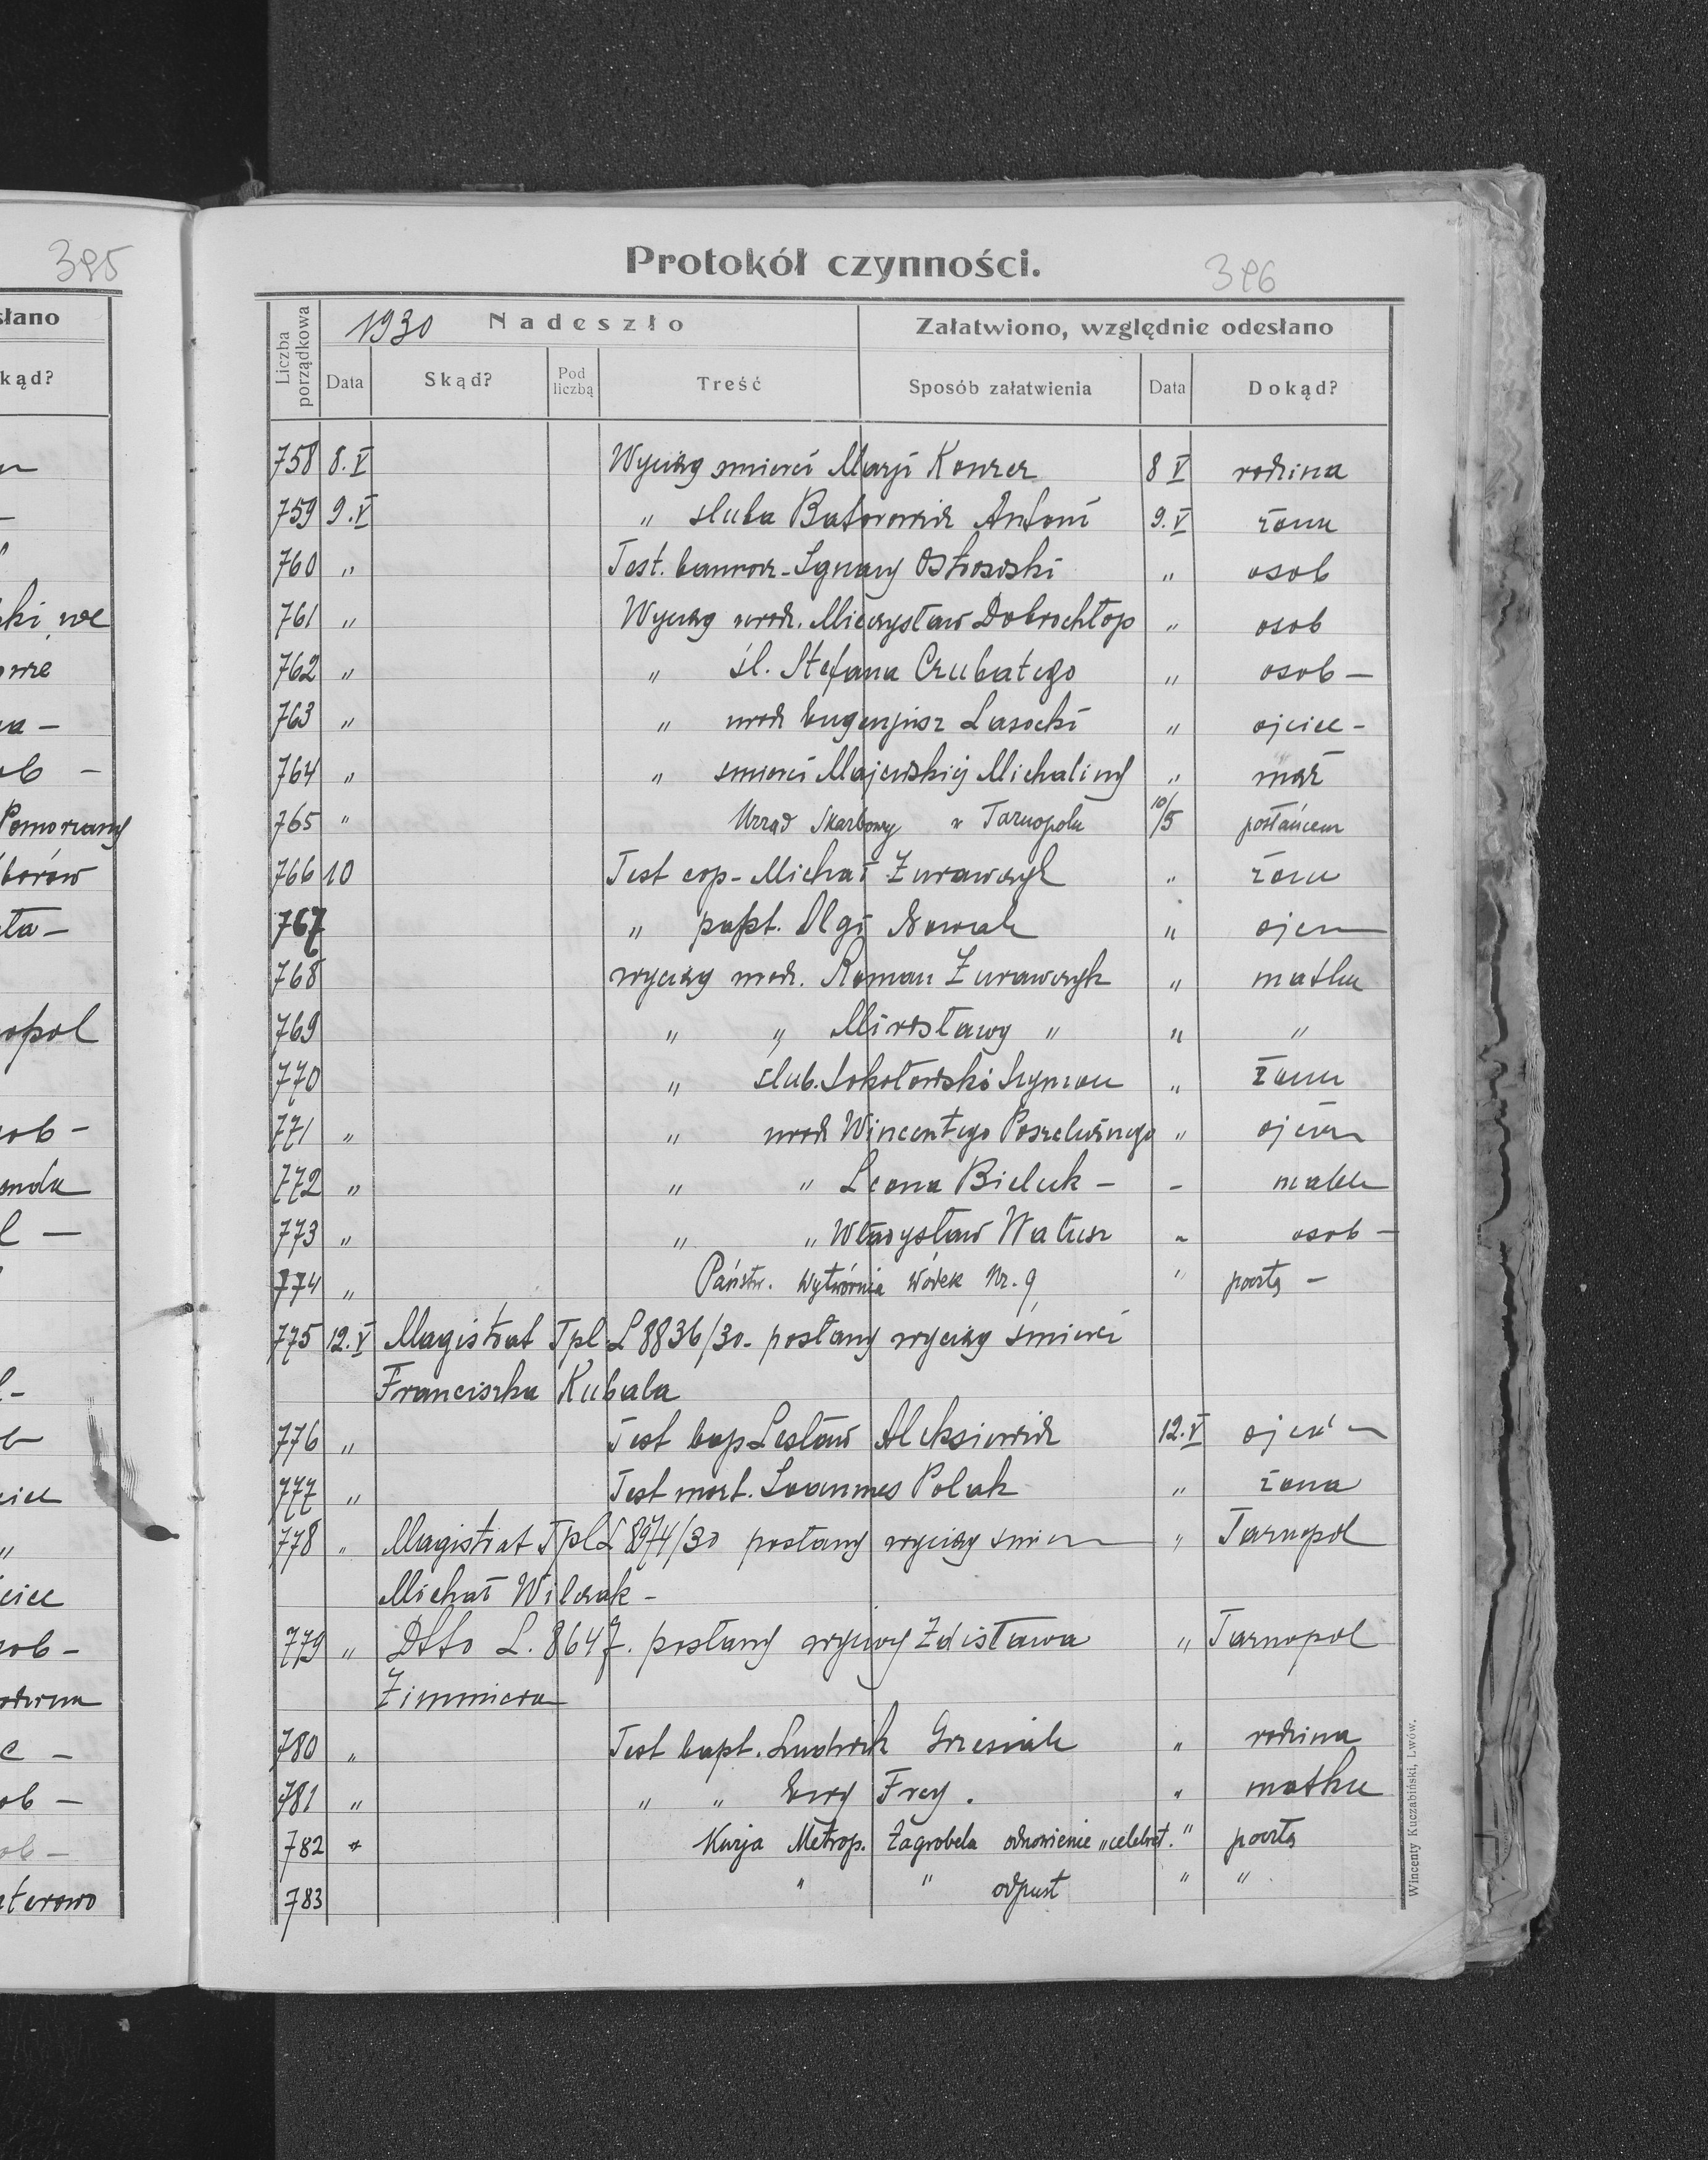 395
słano
kąd?
ki we
wa -
ob -
Pomorzany
borów
ta -
opol
ob -
eterowo
Protokół czynności.
396
Liczba porządkowa
1930 Nadeszło
Załatwiono, względnie odesłano
Data Skąd? Pod liczbą Treść Sposób załatwienia Data Dokąd?
758 8.V Wyciąg śmierci Marji Konzer 8 V rodzina
759 9.V " ślubu Batorowicz Antoni 9.V żona
760 " Test. Ignacy Ostrowski " osob
761 " Wyciąg urodz. Mieczysław Dobrochłop " osob
762 " " śl. Stefana Czubatego " osob -
763 " " urodz Eugenjusz Lasocki " ojciec -
764 " " śmierci Majewskiej Michaliny " mąż
765 " Urząd Skarbowy w Tarnopolu 10/5 posłańcem
766 10 Test cop - Michał Żurawczyk " żona
767 " Olgi Nowak " ojciec
768 wyciąg urodz. Roman Żurawczyk " matka
769 " " Mirosławy " " "
770 " ślub. Sokołowski Szymon " żona
771 " " urodz Wincentego Poszeluźnego " ojciec
772 " " " Leona Bieluk - - matka
773 " " " Władysław Watusz " osob -
774 " Państw. Wytwórnia Wódek Nr. 9 " pocztą -
775 12.V Magistrat Tpl L 8836/30 - posłany wyciąg śmierci
Franciszka Kubala
776 " Test bap Lesław Aleksiewicz 12.V ojciec
777 " Test mort. Joannes Polak " żona
778 " Magistrat Tpl L 8974/30 posłany wyciąg śmierci " Tarnopol
Michał Wilczak -
779 " Dtto L. 8647. posłany wyciąg Zdisława " Tarnopol
Zimmiera
780 " Test bapt. Ludwik Grzesiak " rodzina
781 " " " Ewy Frey . " matka
782 " Kurja Metrop. Zagrobela odnowienie „celebret." pocztą
783 " " odpust " "
Wincenty Kuczabiński, Lwów.